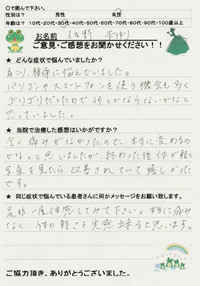 ○で囲んで下さい。
性別は？ 男性 女性
年齢は？ 10代・20代・30代・40代・50代・60代・70代・80代・90代・100歳以上
お名前
ご意見・ご感想をお聞かせください！！
★ どんな症状で悩んでいましたか？
肩こり、腰痛に悩んでいました。
パソコンやスマートフォンを使う機会も多く
★ 当院で治療した感想はいかがですか？
全く痛みがなかったので、本当に変わるのか
なと思いましたが、終わった後体が軽く
写真を見たら改善されていて嬉しかった
です。
★ 同じ症状で悩んでいる患者さんに何かメッセージをお願い致します。
是非一度体感してみて下さい。本当に痛み
なく、体の軽さを実感出来ると思いま
す。
ご協力頂き、ありがとうございました。